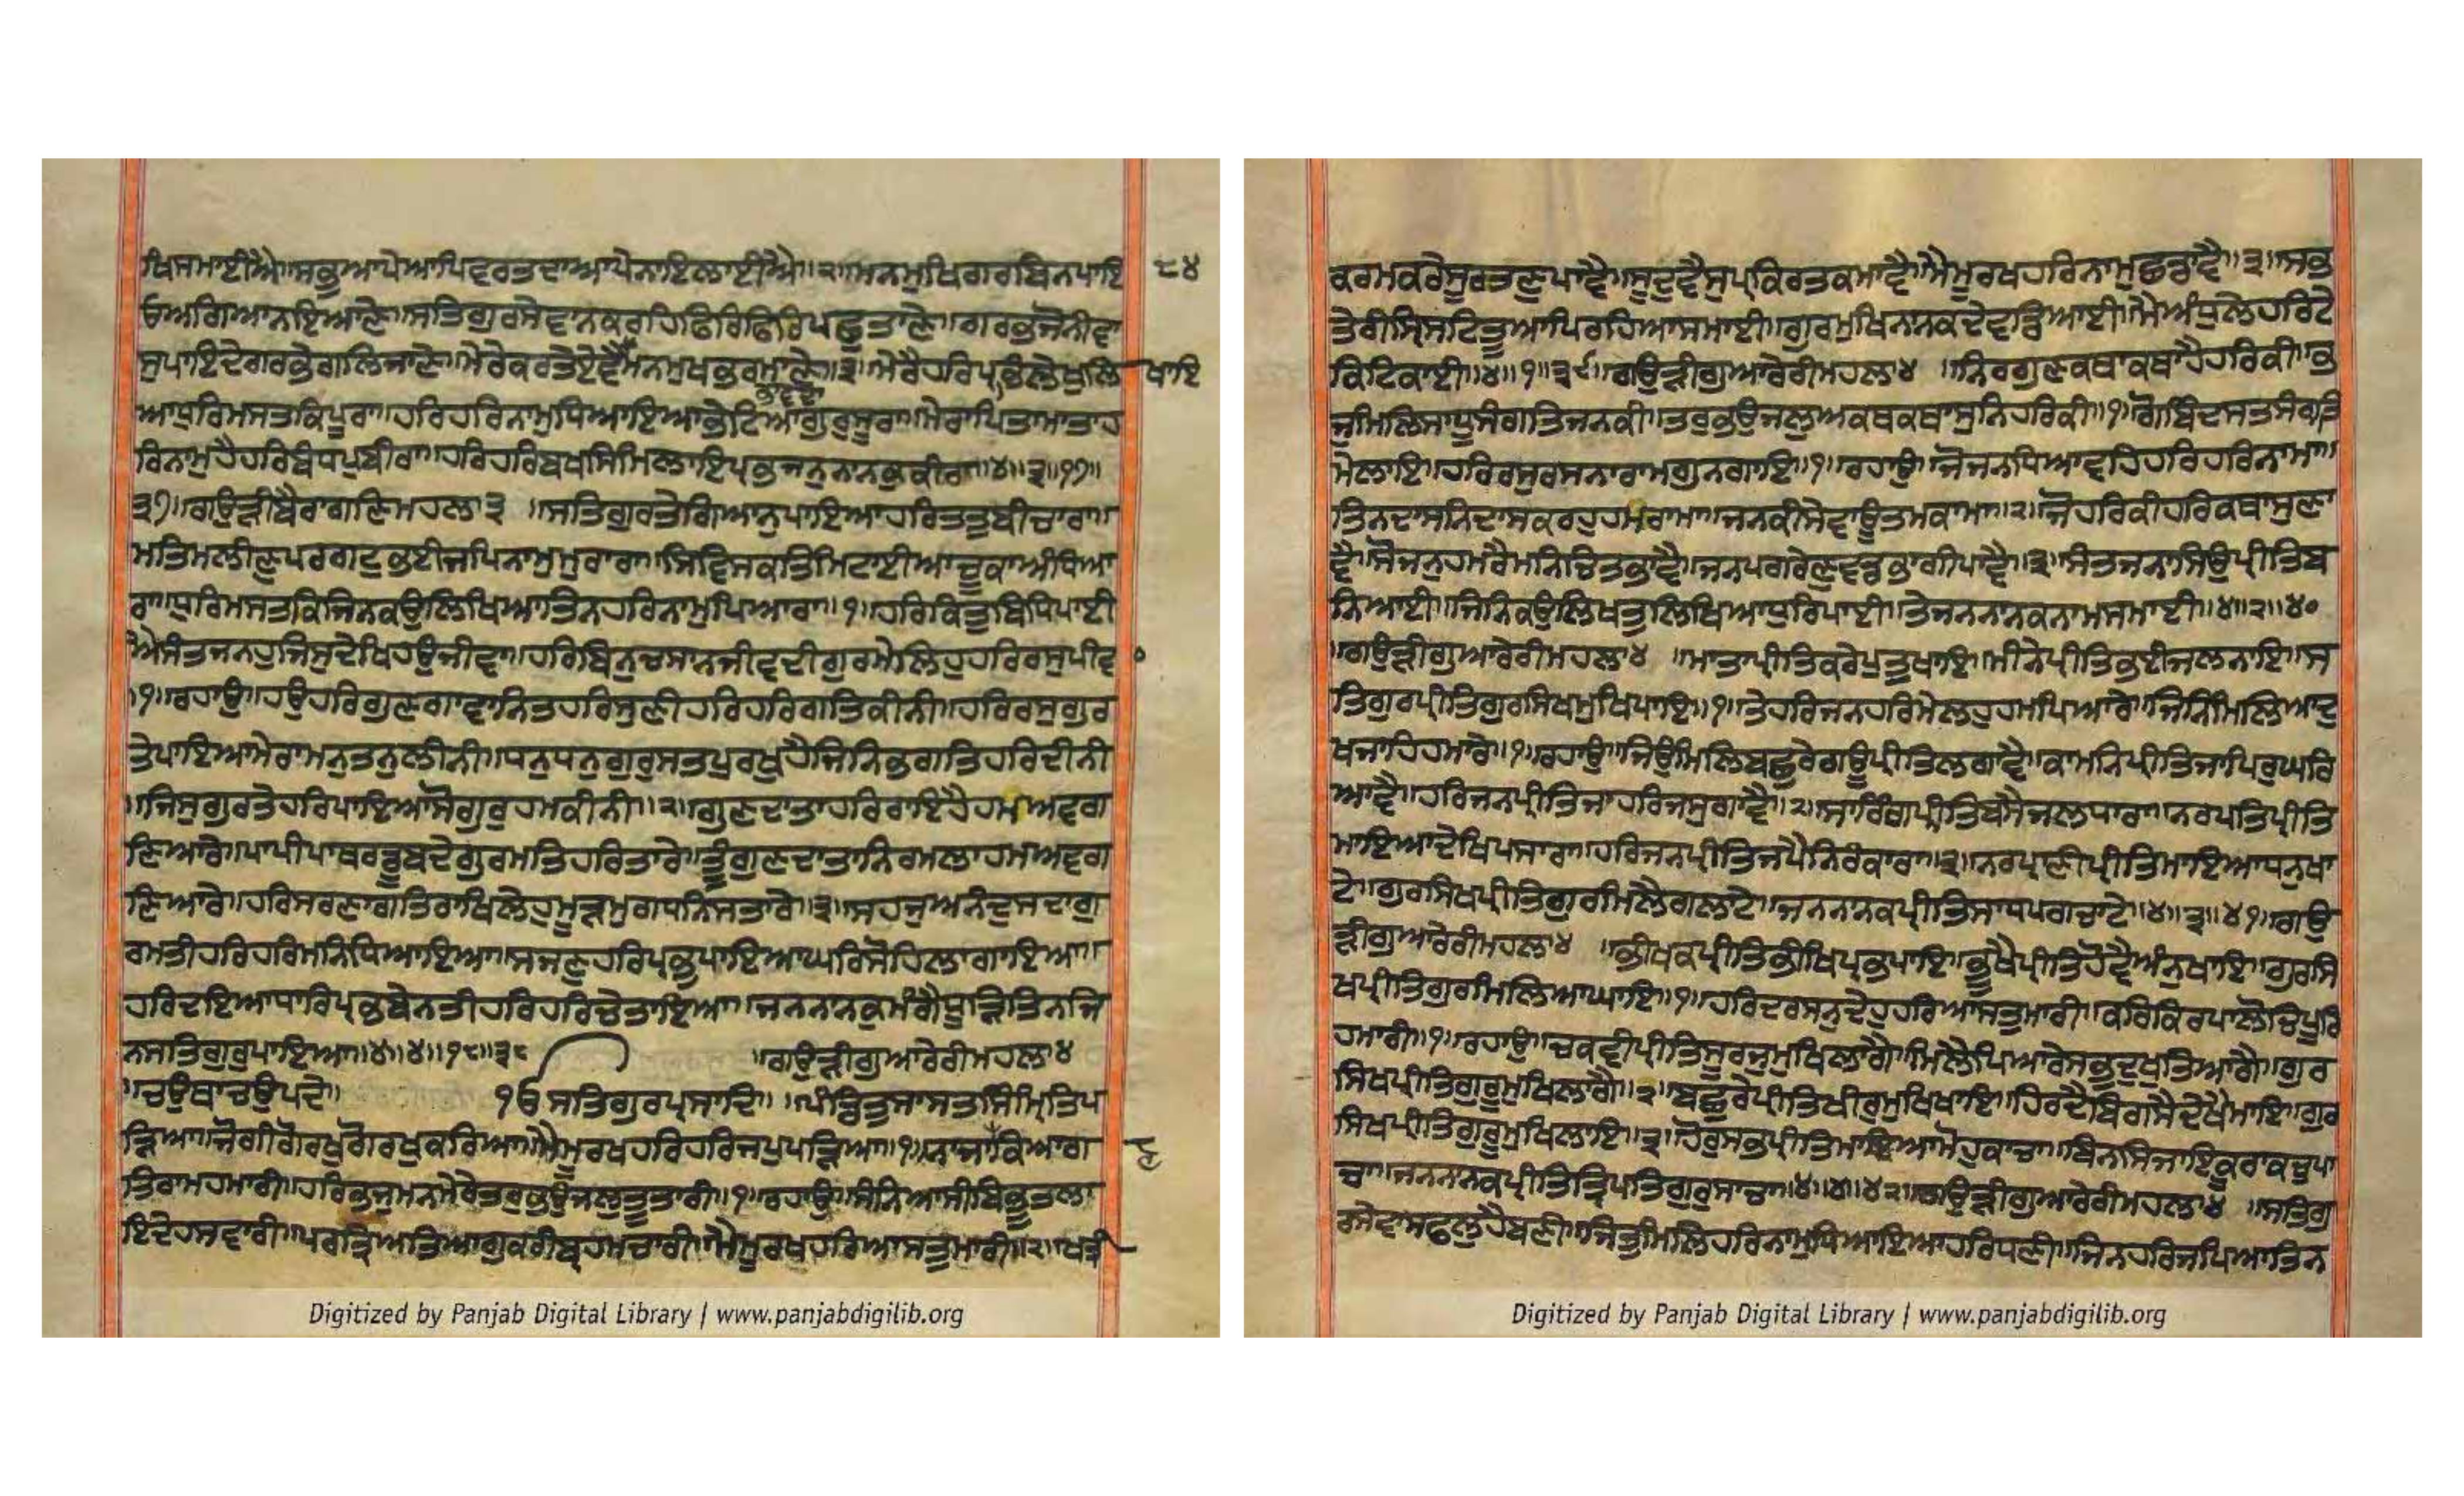 ਖਿਸਮਾਈਐ॥ਸਭੁਆਪੇਆਪਿਵਰਤਦਾਆਪੇਨਾਇਲਾਈਐ॥੨॥ਮਨਮੁਖਿਗਰਬਿਨਪਾਇ ੮੪
ਓਅਗਿਆਨਇਆਣੇ॥ਸਤਿਗੁਰਸੇਵਾਨਕਰਹਿਫਿਰਿਫਿਰਿਪਛੁਤਾਣੇ॥ਗਰਭਜੋਨੀਵਾ
ਸੁਪਾਇਦੇਗਰਭੇਗਲਿਜਾਣੇ॥ਮੇਰੇਕਰਤੇਏਵੈਮਨਮੁਖਭਰਮਾਣੇ॥੩॥ਮੇਰੈਹਰਿਪ੍ਰਭਿਲੇਖੁਲਿ ਖਾਇ
ਆਧੁਰਿਮਸਤਕਿਪੂਰਾ॥ਹਰਿਹਰਿਨਾਮੁਧਿਆਇਆਭੇਟਿਆਗੁਰੁਸੂਰਾ॥ਮੇਰਾਪਿਤਾਮਾਤਾਹ
ਰਿਨਾਮੁਹੈਹਰਿਬੰਧਪੁਬੀਰਾ॥ਹਰਿਹਰਿਬਖਸਿਮਿਲਾਇਪ੍ਰਭਜਨੁਨਾਨਕੁਕੀਰਾ॥੪॥੩॥੧੭॥
੩੭॥ਗਉੜੀਬੈਰਾਗਣਿਮਹਲਾ੩ ॥ਸਤਿਗੁਰਤੇਗਿਆਨੁਪਾਇਆਹਰਿਤਤੁਬੀਚਾਰਾ॥
ਮਤਿਮਲੀਣਪਰਗਟੁਭਈਜਪਿਨਾਮੁਮੁਰਾਰਾ॥ਸਿਵਿਸਕਤਿਮਿਟਾਈਆਚੂਕਾਅੰਧਿਆ
ਰਾ॥ਧੁਰਿਮਸਤਕਿਜਿਨਕਉਲਿਖਿਆਤਿਨਹਰਿਨਾਮੁਪਿਆਰਾ॥੧॥ਹਰਿਕਿਤੁਬਿਧਿਪਾਈ
ਐਸੰਤਜਨਹੁਜਿਸੁਦੇਖਿਹਉਜੀਵਾ॥ਹਰਿਬਿਨੁਚਸਾਨਜੀਵਦੀਗੁਰਮੇਲਿਹੁਹਰਿਰਸੁਪੀਵ
॥੧॥ਰਹਾਉ॥ਹਉਹਰਿਗੁਣਗਾਵਾਨਿਤਹਰਿਸੁਣੀਹਰਿਹਰਿਗਤਿਕੀਨੀ॥ਹਰਿਰਸੁਗੁਰ
ਤੇਪਾਇਆਮੇਰਾਮਨੁਤਨੁਲੀਨੀ॥ਧਨੁਧਨੁਗੁਰੁਸਤਪੁਰਖੁਹੈਜਿਨਿਭਗਤਿਹਰਿਦੀਨੀ
॥ਜਿਸੁਗੁਰਤੇਹਰਿਪਾਇਆਸੋਗੁਰੁਹਮਕੀਨੀ॥੨॥ਗੁਣਦਾਤਾਹਰਿਰਾਇਹੈਹਮਅਵਗ
ਣਿਆਰੇ॥ਪਾਪੀਪਾਥਰਡੂਬਦੇਗੁਰਮਤਿਹਰਿਤਾਰੇ॥ਤੂੰਗੁਣਦਾਤਾਨਿਰਮਲਾਹਮਅਵਗ
ਣਿਆਰੇ॥ਹਰਿਸਰਣਾਗਤਿਰਾਖਿਲੇਹੁਮੂੜਮੁਗਧਨਿਸਤਾਰੇ॥੩॥ਸਹਜੁਅਨੰਦੁਸਦਾਗੁ
ਰਮਤੀਹਰਿਹਰਿਮਨਿਧਿਆਇਆ॥ਸਜਣੁਹਰਿਪ੍ਰਭੁਪਾਇਆਘਰਿਸੋਹਿਲਾਗਾਇਆ॥
ਹਰਿਦਇਆਧਾਰਿਪ੍ਰਭਬੇਨਤੀਹਰਿਹਰਿਚੇਤਾਇਆ॥ਜਨਨਾਨਕੁਮੰਗੈਧੂੜਿਤਿਨਜਿ
ਨਸਤਿਗੁਰੁਪਾਇਆ॥੪॥੪॥੧੮॥੩੮ ॥ਗਉੜੀਗੁਆਰੇਰੀਮਹਲਾ੪
॥ਚਉਥਾਚਉਪਦੇ॥ ੴਸਤਿਗੁਰਪ੍ਰਸਾਦਿ॥ ॥ਪੰਡਿਤੁਸਾਸਤਸਿਮ੍ਰਿਤਿਪ
ੜਿਆ॥ਜੋਗੀਗੋਰਖੁਗੋਰਖੁਕਰਿਆ॥ਮੈਮੂਰਖਹਰਿਹਰਿਜਪੁਪੜਿਆ॥੧॥ਨਾਜਾਨਾਕਿਆਗ
ਤਿਰਾਮਹਮਾਰੀ॥ਹਰਿਭਜੁਮਨਮੇਰੇਤਰੁਭਉਜਲੁਤੂਤਾਰੀ॥੧॥ਰਹਾਉ॥ਸੰਨਿਆਸੀਬਿਭੂਤਲਾ
ਇਦੇਹਸਵਾਰੀ॥ਪਰਤ੍ਰਿਅਤਿਆਗੁਕਰੀਬ੍ਰਹਮਚਾਰੀ॥ਮੈਮੂਰਖਹਰਿਆਸਤੁਮਾਰੀ॥੨॥ਖਤ੍ਰੀ
ਕਰਮਕਰੇਸੂਰਤਣੁਪਾਵੈ॥ਸੂਦੁਵੈਸੁਪਰਕਿਰਤਿਕਮਾਵੈ॥ਮੈਮੂਰਖਹਰਿਨਾਮੁਛਡਾਵੈ॥੩॥ਸਭ
ਤੇਰੀਸ੍ਰਿਸਟਿਤੂਆਪਿਰਹਿਆਸਮਾਈ॥ਗੁਰਮੁਖਿਨਾਨਕਦੇਵਡਿਆਈ॥ਮੈਅੰਧੁਲੇਹਰਿਟੇ
ਕਟਿਕਾਈ॥੪॥੧॥੩੯॥ਗਉੜੀਗੁਆਰੇਰੀਮਹਲਾ੪ ॥ਨਿਰਗੁਣਕਥਾਕਥਾਹੈਹਰਿਕੀ॥ਭ
ਜੁਮਿਲਿਸਾਧੂਸੰਗਤਿਜਨਕੀ॥ਤਰੁਭਉਜਲੁਅਕਥਕਥਾਸੁਨਿਹਰਿਕੀ॥੧॥ਗੋਬਿੰਦਸਤਸੰਗਤਿ
ਮੇਲਾਇ॥ਹਰਿਰਸੁਰਸਨਾਰਾਮਗੁਨਗਾਇ॥੧॥ਰਹਾਉ॥ਜੋਜਨਧਿਆਵਹਿਹਰਿਹਰਿਨਾਮਾ॥
ਤਿਨਦਾਸਨਿਦਾਸਕਰਹੁਹਮਰਾਮਾ॥ਜਨਕੀਸੇਵਾਊਤਮਕਾਮਾ॥੨॥ਜੋਹਰਿਕੀਹਰਿਕਥਾਸੁਣਾ
ਵੈ॥ਸੋਜਨੁਹਮਰੈਮਨਿਚਿਤਿਭਾਵੈ॥ਜਨਪਗਰੇਣੁਵਡਭਾਗੀਪਾਵੈ॥੩॥ਸੰਤਜਨਾਸਿਉਪ੍ਰੀਤਿਬ
ਨਿਆਈ॥ਜਿਨਕਉਲਿਖਤੁਲਿਖਿਆਧੁਰਿਪਾਈ॥ਤੇਜਨਨਾਨਕਨਾਮਸਮਾਈ॥੪॥੨॥੪੦
॥ਗਉੜੀਗੁਆਰੇਰੀਮਹਲਾ੪ ॥ਮਾਤਾਪ੍ਰੀਤਿਕਰੇਪੁਤੁਖਾਇ॥ਮੀਨੇਪ੍ਰੀਤਿਭਈਜਲਨਾਇ॥ਸ
ਤਿਗੁਰਪ੍ਰੀਤਿਗੁਰਸਿਖਮੁਖਿਪਾਇ॥੧॥ਤੇਹਰਿਜਨਹਰਿਮੇਲਹੁਹਮਪਿਆਰੇ॥ਜਿਨਮਿਲਿਆਦੁ
ਖਜਾਹਿਹਮਾਰੇ॥੧॥ਰਹਾਉ॥ਜਿਉਮਿਲਿਬਛਰੇਗਊਪ੍ਰੀਤਿਲਗਾਵੈ॥ਕਾਮਨਿਪ੍ਰੀਤਿਜਾਪਿਰੁਘਰਿ
ਆਵੈ॥ਹਰਿਜਨਪ੍ਰੀਤਿਜਾਹਰਿਜਸੁਗਾਵੈ॥੨॥ਸਾਰਿੰਗਪ੍ਰੀਤਿਬਸੈਜਲਧਾਰਾ॥ਨਰਪਤਿਪ੍ਰੀਤਿ
ਮਾਇਆਦੇਖਿਪਸਾਰਾ॥ਹਰਿਜਨਪ੍ਰੀਤਿਜਪੈਨਿਰੰਕਾਰਾ॥੩॥ਨਰਪ੍ਰਾਣੀਪ੍ਰੀਤਿਮਾਇਆਧਨੁਖਾ
ਟੇ॥ਗੁਰਸਿਖਪ੍ਰੀਤਿਗੁਰਮਿਲੈਗਲਾਟੇ॥ਜਨਨਾਨਕਪ੍ਰੀਤਿਸਾਧਪਗਚਾਟੇ॥੪॥੩॥੪੧॥ਗਉ
ੜੀਗੁਆਰੇਰੀਮਹਲਾ੪ ॥ਭੀਖਕਪ੍ਰੀਤਿਭੀਖਿਪ੍ਰਭਪਾਇ॥ਭੂਖੈਪ੍ਰੀਤਿਹੋਵੈਅੰਨੁਖਾਇ॥ਗੁਰਸਿ
ਖਪ੍ਰੀਤਿਗੁਰਮਿਲਿਆਘਾਇ॥੧॥ਹਰਿਦਰਸਨੁਦੇਹੁਹਰਿਆਸਤੁਮਾਰੀ॥ਕਰਿਕਿਰਪਾਲੋਚਪੂਰਿ
ਹਮਾਰੀ॥੧॥ਰਹਾਉ॥ਚਕਵੀਪ੍ਰੀਤਿਸੂਰਜੁਮੁਖਿਲਾਗੈ॥ਮਿਲੈਪਿਆਰੇਸਭਦੁਖਤਿਆਗੈ॥ਗੁਰ
ਸਿਖਪ੍ਰੀਤਿਗੁਰੂਮੁਖਿਲਾਗੈ॥੨॥ਬਛਰੇਪ੍ਰੀਤਿਖੀਰੁਮੁਖਿਖਾਇ॥ਹਿਰਦੈਬਿਗਸੈਦੇਖੈਮਾਇ॥ਗੁਰ
ਸਿਖਪ੍ਰੀਤਿਗੁਰੂਮੁਖਿਲਾਇ॥੩॥ਹੋਰੁਸਭਪ੍ਰੀਤਿਮਾਇਆਮੋਹੁਕਾਚਾ॥ਬਿਨਸਿਜਾਇਕੂਰਾਕਚੁਪਾ
ਚਾ॥ਜਨਨਾਨਕਪ੍ਰੀਤਿਤ੍ਰਿਪਤਿਗੁਰੁਸਾਚਾ॥੪॥੪॥੪੨॥ਗਉੜੀਗੁਆਰੇਰੀਮਹਲਾ੪ ॥ਸਤਿਗੁ
ਰਸੇਵਾਸਫਲਹੈਬਣੀ॥ਜਿਤੁਮਿਲਿਹਰਿਨਾਮੁਧਿਆਇਆਹਰਿਧਣੀ॥ਜਿਨਹਰਿਜਪਿਆਤਿਨ
Digitized by Panjab Digital Library | www.panjabdigilib.org
Digitized by Panjab Digital Library | www.panjabdigilib.org